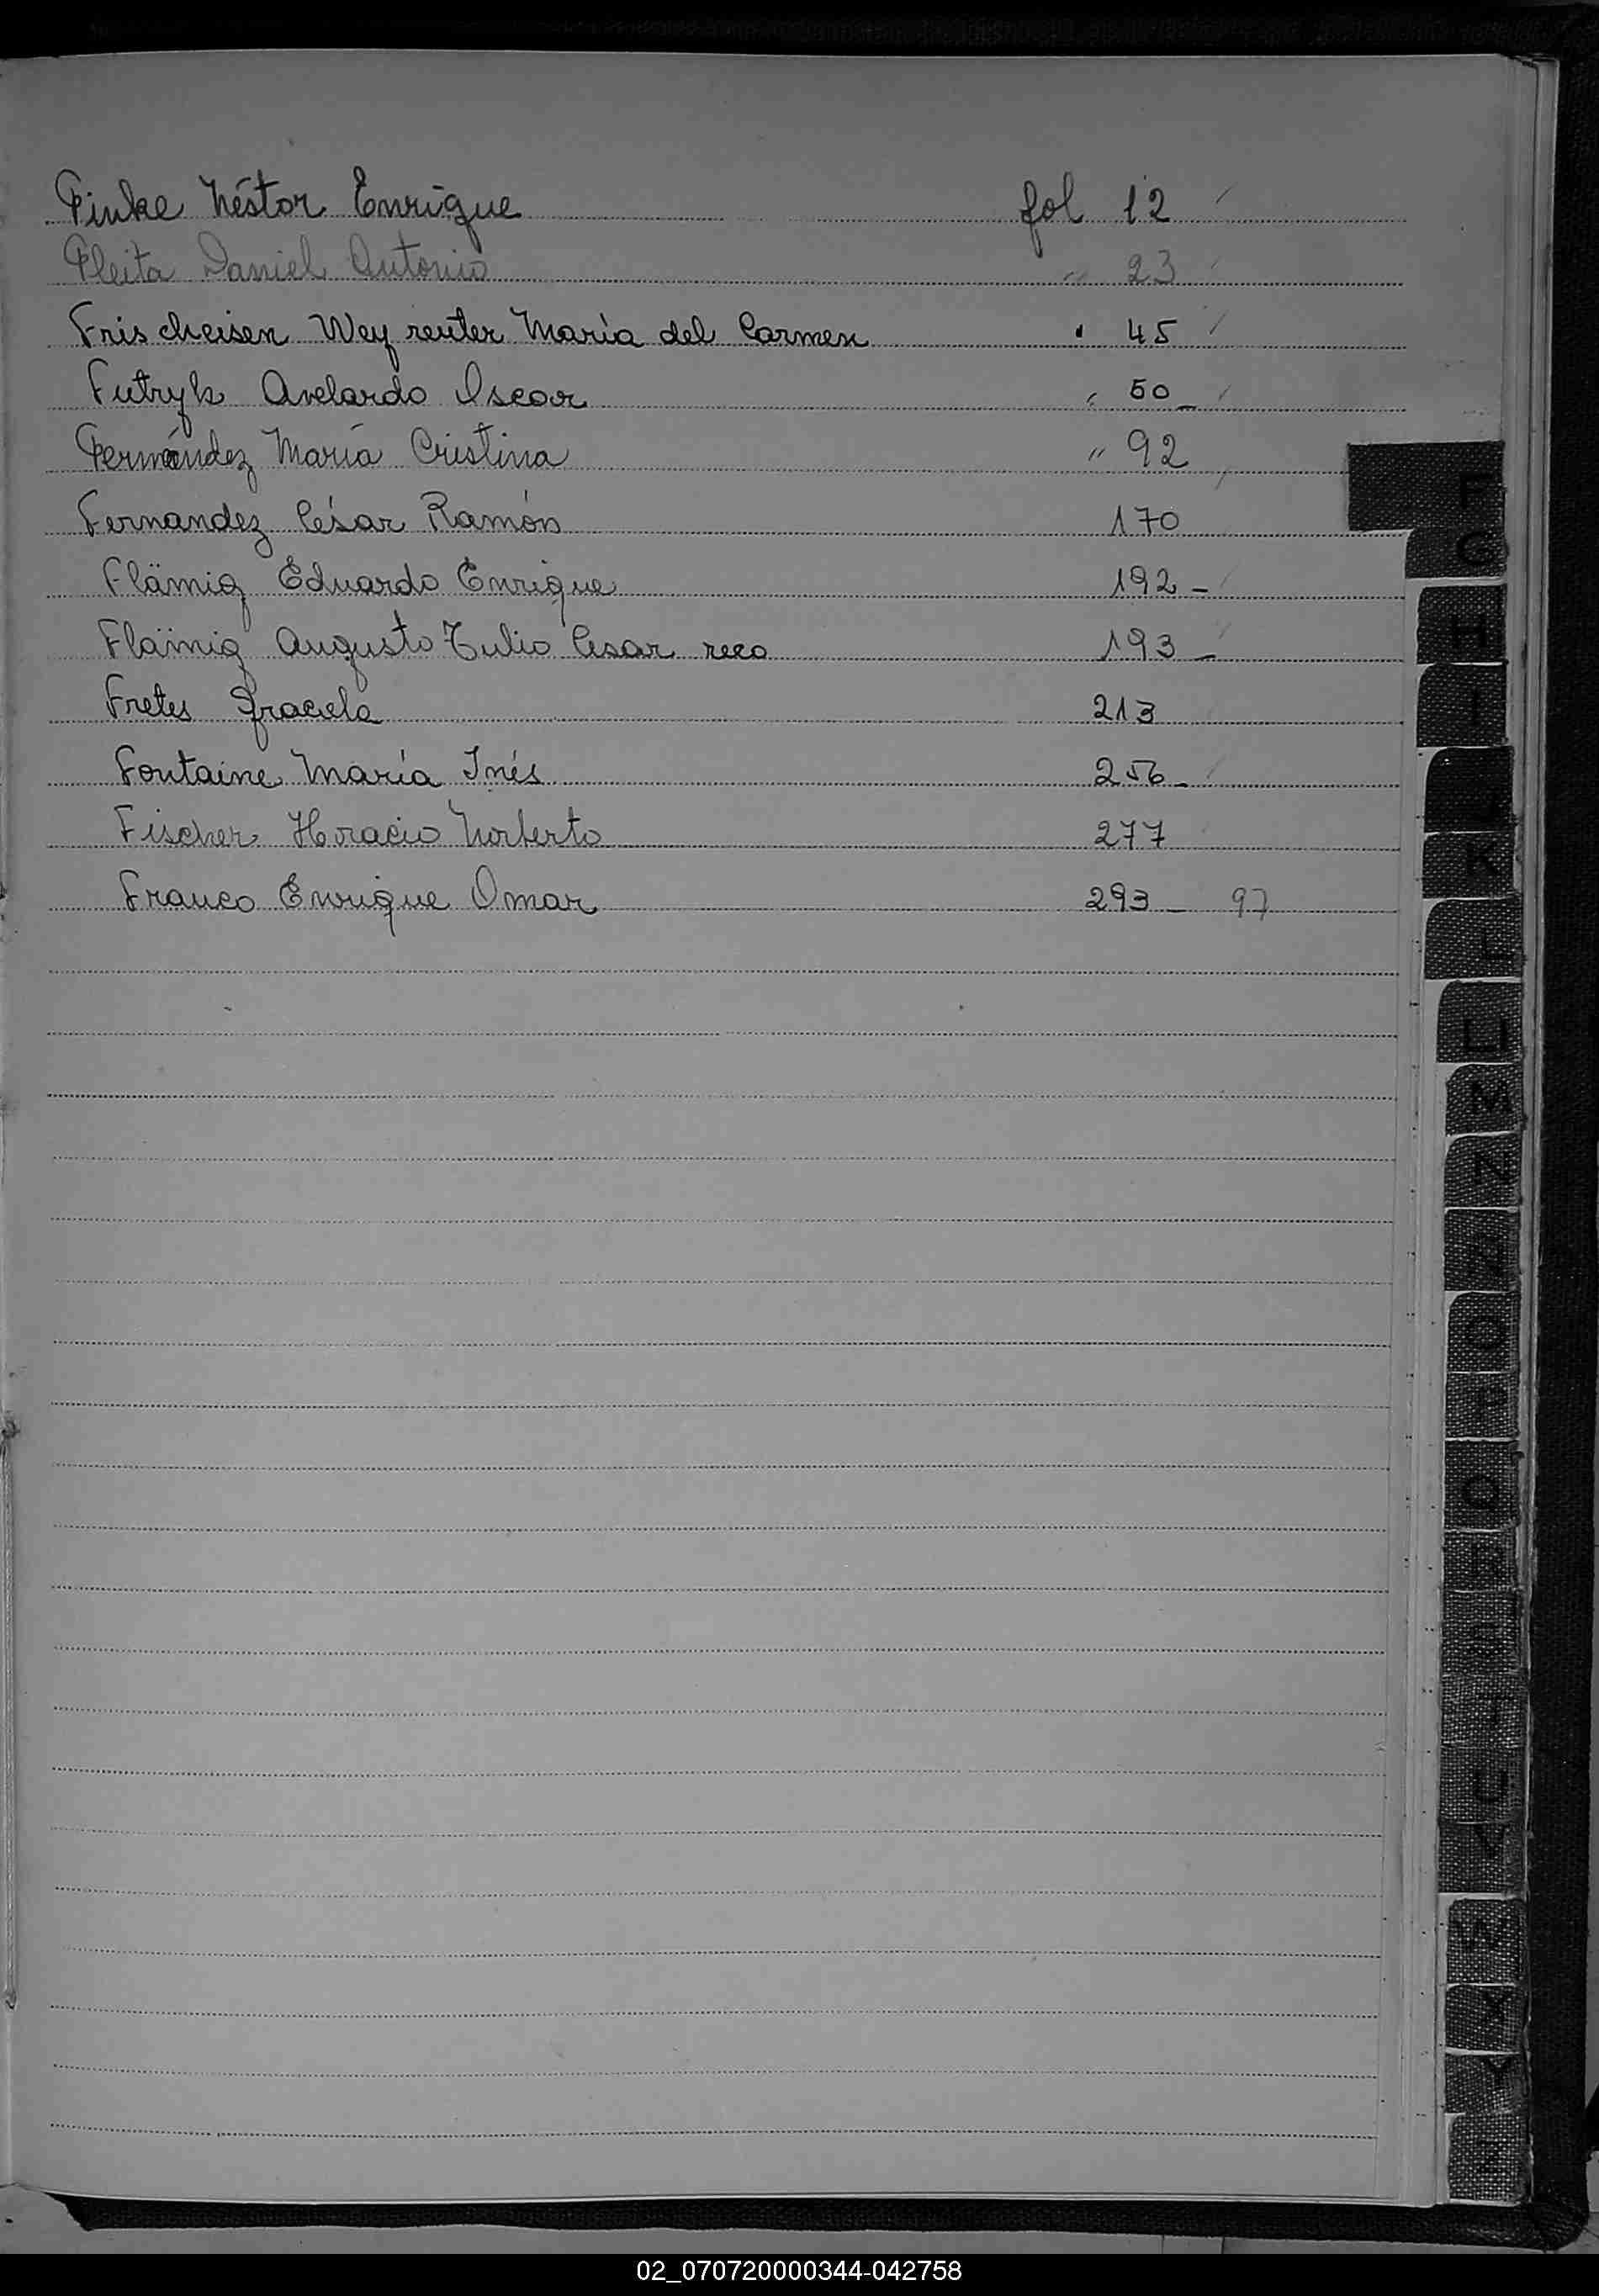 Finke Néstor Enrique fol 12
Fleita Daniel Antonio " 23
Frischeisen Weyreuter María del Carmen " 45
Futryk Avelardo Oscar " 50_
Fernández María Cristina " 92
Fernandez César Ramón 170
Flämig Eduardo Enrique 192 -
Flämig Augusto Tulio Cesar reco 193 _
Fretes Graciela 213
Fontaine María Inés 256_
Fischer Horacio Norberto 277
Franco Enrique Omar 293 _ 97
F
G
H
I
J
K
L
Ll
M
N
Ñ
O
P
Q
R
S
T
U
V
W
X
Y
Z
02_070720000344-042758